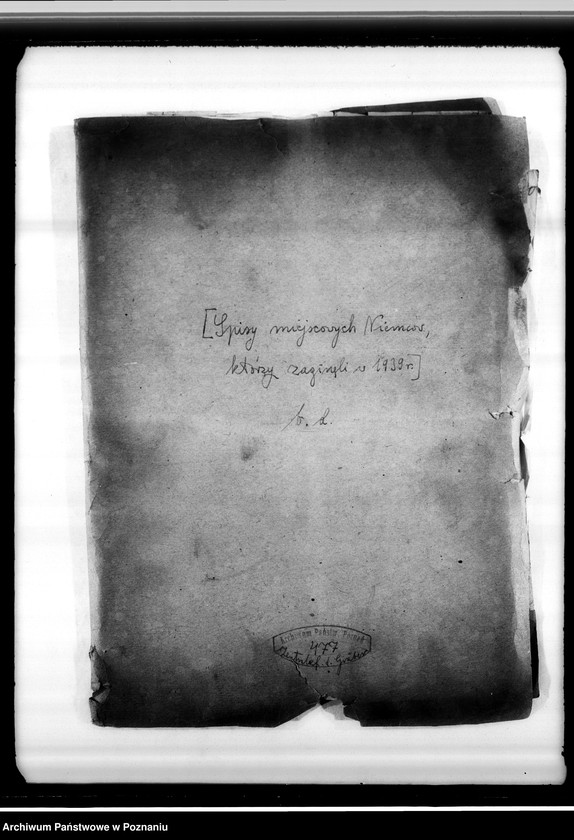 [Spisy miejscowych Niemców,
którzy zaginęli w 1939 r.]
b. d.
Archiwum Państw. Poznań
477
Archiwum Państwowe w Poznaniu